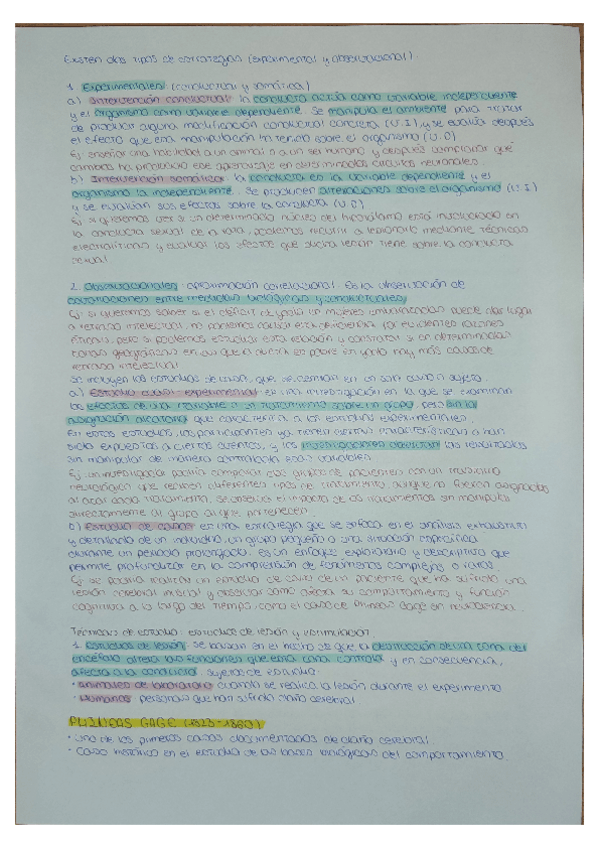 Existen dos tipos de estrategias (experimental y observacional)
1. Experimentales: (conductual y somática)
a) Intervención conductual: la conducta actúa como variable independiente
y el organismo como variable dependiente. Se manipula el ambiente para tratar
de producir alguna modificación conductual concreta (V.I) y se evalúa después
el efecto que esa manipulación ha tenido sobre el organismo (V.D)
Ej: enseñar una habilidad a un animal o a un ser humano y después comprobar qué
cambios ha producido ese aprendizaje en determinados circuitos neuronales.
b) Intervención somática: la conducta es la variable dependiente y el
organismo la independiente. Se producen alteraciones sobre el organismo (V.I)
y se evalúan sus efectos sobre la conducta (V.D)
Ej: si queremos ver si un determinado núcleo del hipotálamo está involucrado en
la conducta sexual de la rata, podemos recurrir a lesionarlo mediante técnicas
electrolíticas y evaluar los efectos que dicha lesión tiene sobre la conducta
sexual.
2. Observacionales: aproximación correlacional. Es la observación de
correlaciones entre medidas biológicas y conductuales.
Ej: si queremos saber si el déficit de yodo en mujeres embarazadas puede dar lugar
a retraso intelectual, no podemos inducir esta deficiencia por evidentes razones
éticas, pero sí podemos estudiar esta relación y contrastar si en determinadas
zonas geográficas en las que la dieta es pobre en yodo hay más casos de
retraso intelectual
Se incluyen los estudios de caso, que se centran en un solo sujeto.
a) Estudio cuasi-experimental: es una investigación en la que se examinan
los efectos de una variable o un tratamiento sobre un grupo, pero sin la
asignación aleatoria que caracteriza a los estudios experimentales.
En estos estudios, los participantes ya tienen ciertas características o han
sido expuestos a ciertos eventos, y los investigadores observan los resultados
sin manipular de manera controlada esas variables.
Ej: un investigador podría comparar dos grupos de pacientes con un trastorno
neurológico que reciben diferentes tipos de tratamiento, aunque no fueron asignados
al azar a cada tratamiento, se observa el impacto de los tratamientos sin manipular
directamente al grupo al que pertenecen.
b) Estudio de casos: es una estrategia que se enfoca en el análisis exhaustivo
y detallado de un individuo, un grupo pequeño o una situación específica
durante un periodo prolongado. Es un enfoque exploratorio y descriptivo que
permite profundizar en la comprensión de fenómenos complejos o raros.
Ej: se podría realizar un estudio de caso de un paciente que ha sufrido una
lesión cerebral inusual y observar cómo afecta su comportamiento y función
cognitiva a lo largo del tiempo, como el caso de Phineas Gage en neurociencia.
Técnicas de estudio: estudios de lesión y estimulación.
1. Estudios de lesión: se basan en el hecho de que la destrucción de una zona del
encéfalo altera las funciones que esta zona controla y en consecuencia,
afecta a la conducta. Sujetos de estudio:
· animales de laboratorio: cuando se realiza la lesión durante el experimento
· Humanos: personas que han sufrido daño cerebral
PHINEAS GAGE (1823-1860)
· Uno de los primeros casos documentados de daño cerebral
· Caso histórico en el estudio de las bases biológicas del comportamiento